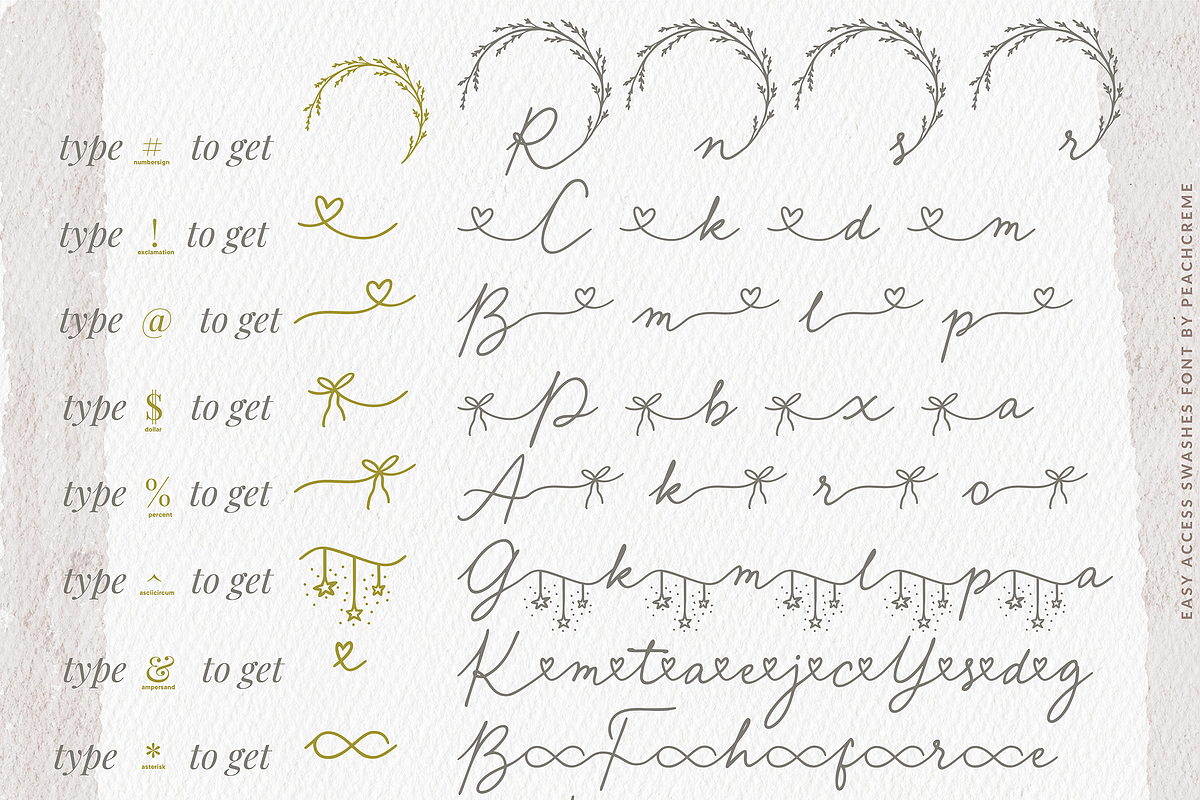 type # to get R n s r
numbersign
type ! to get C k d m
exclamation
type @ to get B m l p
type $ to get P b x a
dollar
type % to get A k r o
percent
type ^ to get G k m l p a
asciicircum
type & to get K m t a e j c Y s d g
ampersand
type * to get B F h f r e
asterisk
EASY ACCESS SWASHES FONT BY PEACHCREME